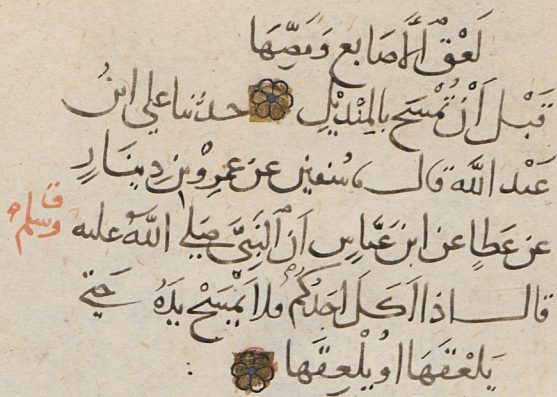 لَعْقِ الْأَصَابِعِ وَمَصِّهَا
قَبْلَ أَنْ تُمْسَحَ بِالْمِنْدِيلِ حدثنا علي ابنُ
عَبْدِ اللَّه قال سُفين عن عمرِو بنِ دِينَارٍ
عن عَطاءٍ عن ابن عَبَّاسٍ أنَّ النَّبِيَّ صَلى اللَّهُ عليه وسلم
قال اذا اَكَلَ احَدُكُمْ فلا يَمْسَحْ يَدَهُ حَتى
يَلْعَقَهَا اوْ يُلْعِقَهَا